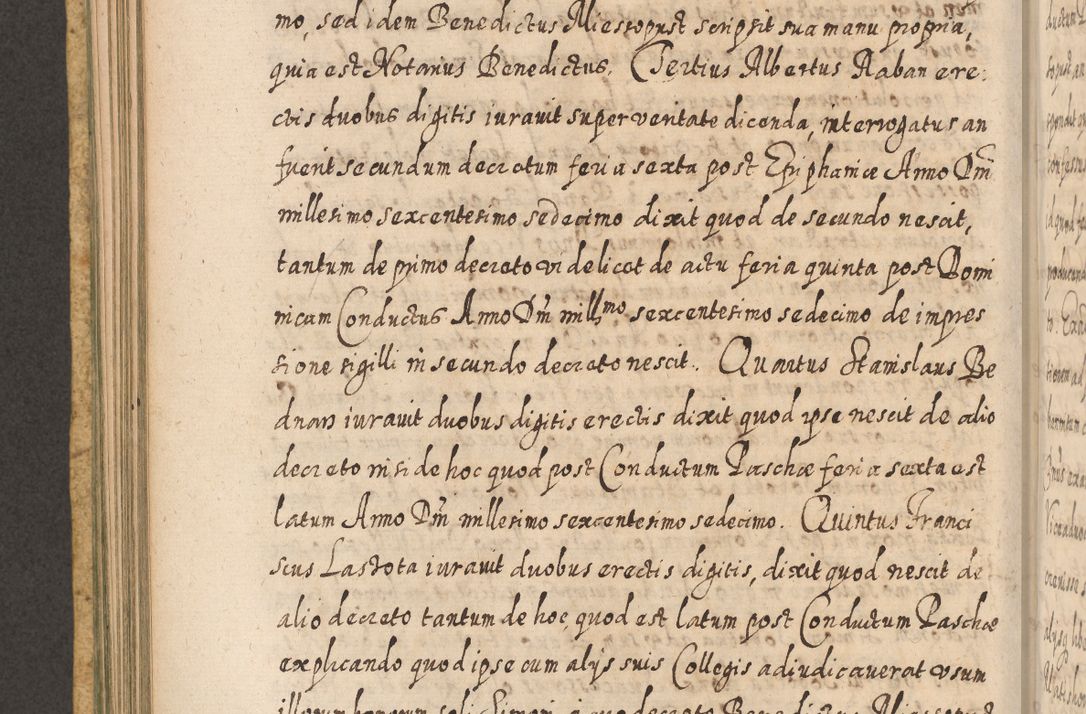 mo, sed idem Benedictus Miessopust scripsit sua manu propria,
quia est Notarius Benedictus. Tertius Albertus Raban ere:
ctis duobus digitis iurauit super veritate dicenda, interrogatus an
fuerit secundum decretum feria sexta post Epiphaniæ Anno Dm̃
millesimo sexcentesimo sedecimo dixit quod de secundo nescit,
tantum de primo decreto videlicet de actu feria quinta post Domi
nicam Conductus Anno Dm̃ mill̃mo sexcentesimo sedecimo de impres
sione sigilli in secundo decreto nescit. Quartus Stanislaus Be
dnarz iurauit duobus digitis erectis dixit quod ipse nescit de alio
decreto nisi de hoc quod post Conductum Paschæ feria sexta est
latum Anno Dm̃ millesimo sexcentesimo sedecimo. Quintus Franci
scus Lassota iurauit duobus erectis digitis, dixit quod nescit de
alio decreto tantum de hoc, quod est latum post Conductum Paschæ
explicando quod ipse cum alijs suis Collegis adiudicauerat vsum
illorum bonorum soli Simoni